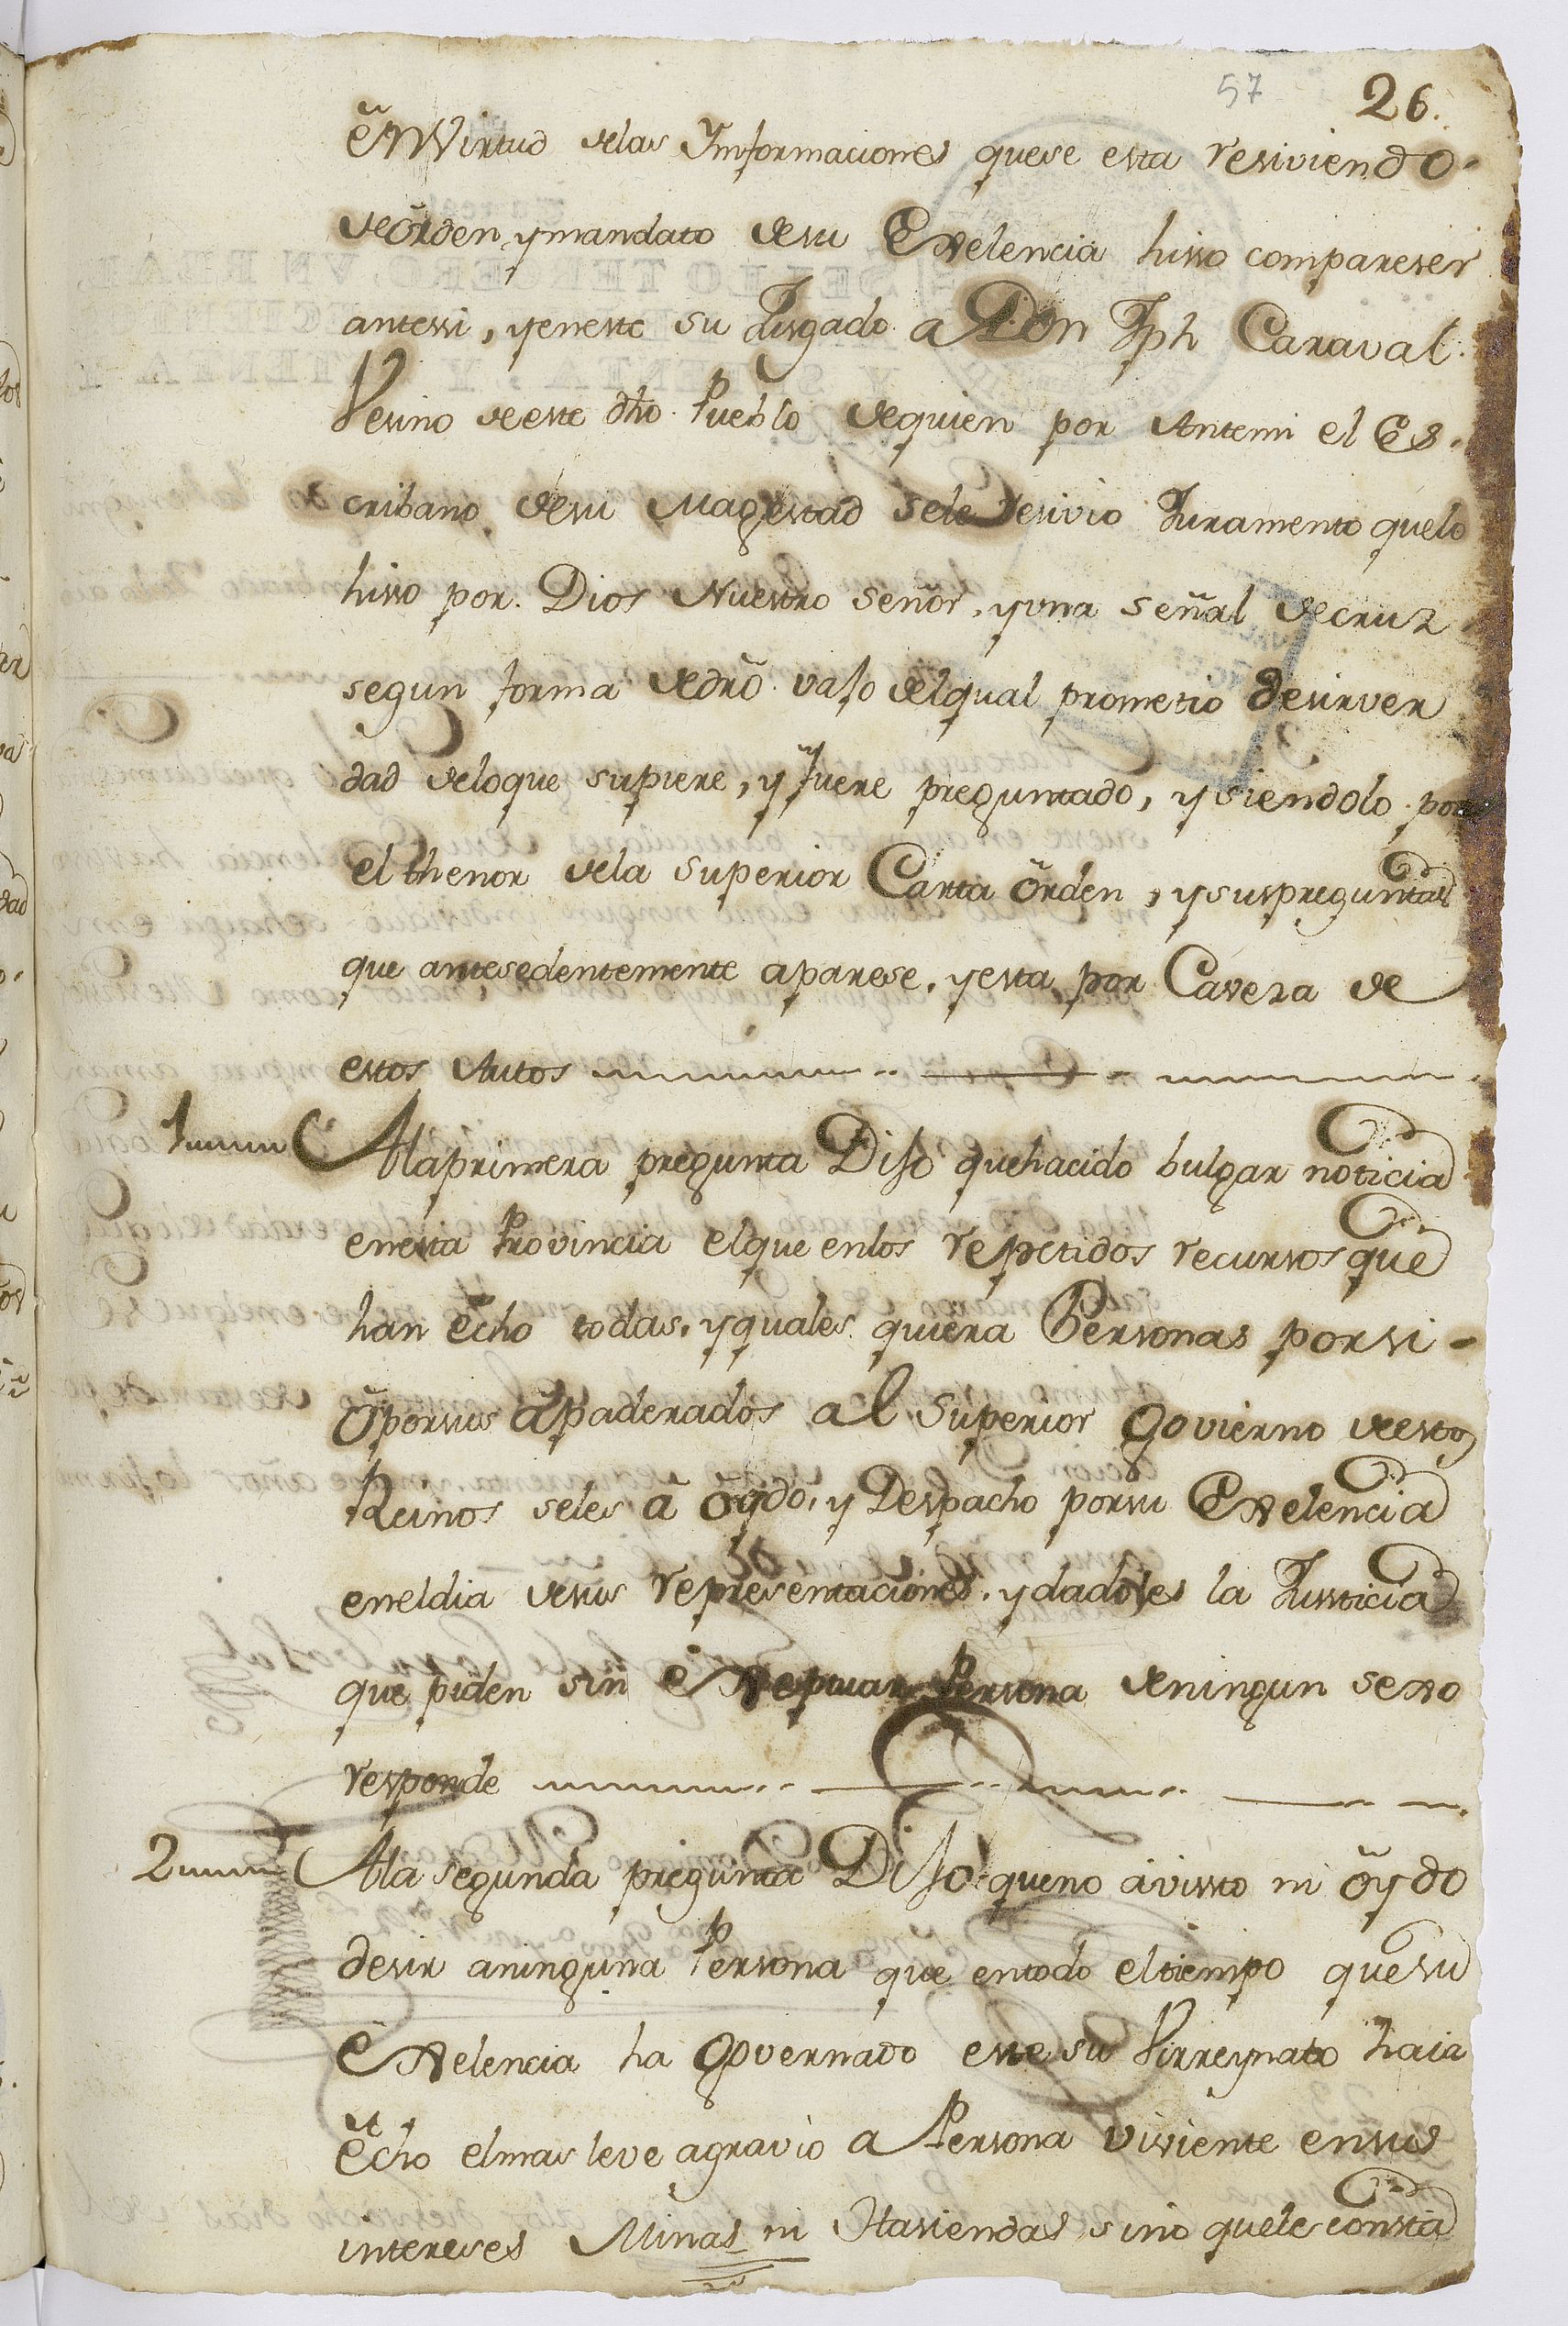 57 26.
en Virtud delas Ynformaciones quese esta resiviendo
deorden, ymandato desu Exelencia hisso compareser
antessi, yeneste su Jusgado a Don Jph Caraval
Vesino deeste dho. Pueblo dequien por Antemi el Es-
cribano desu Magestad sele resivio Juramento quelo
hisso por Dios Nuestro señor, yuna señal decruz
segun forma dedro. vajo delqual prometio desirver
dad deloque supiere, y fuere preguntado, ysiendolo por
el thenor dela superior Carta orden, ysuspreguntas
que antesedentemente aparese, yesta por Caveza de
estos Autos
1 Alaprimera pregunta Dijo quehacido bulgar noticia
enesta Provincia elque enlos repetidos recursos que
han echo todas, yquales quiera Personas porsi-
oporsus apaderados al Superior Govierno deestos
Reinos seles a oydo, y Despacho porsu Exelencia
eneldia desus representaciones, ydadoles la Justicia
que piden sin exeptuar Persona deningun sexo
responde
2 Ala segunda pregunta Dijo queno avissto ni oydo
desir aninguna Persona que entodo eltiempo quesu
Exelencia ha Governado este su Virreynato haia
echo elmas leve agravio a Persona viviente ensus
intereses Minas ni Hasiendas sino queleconsta